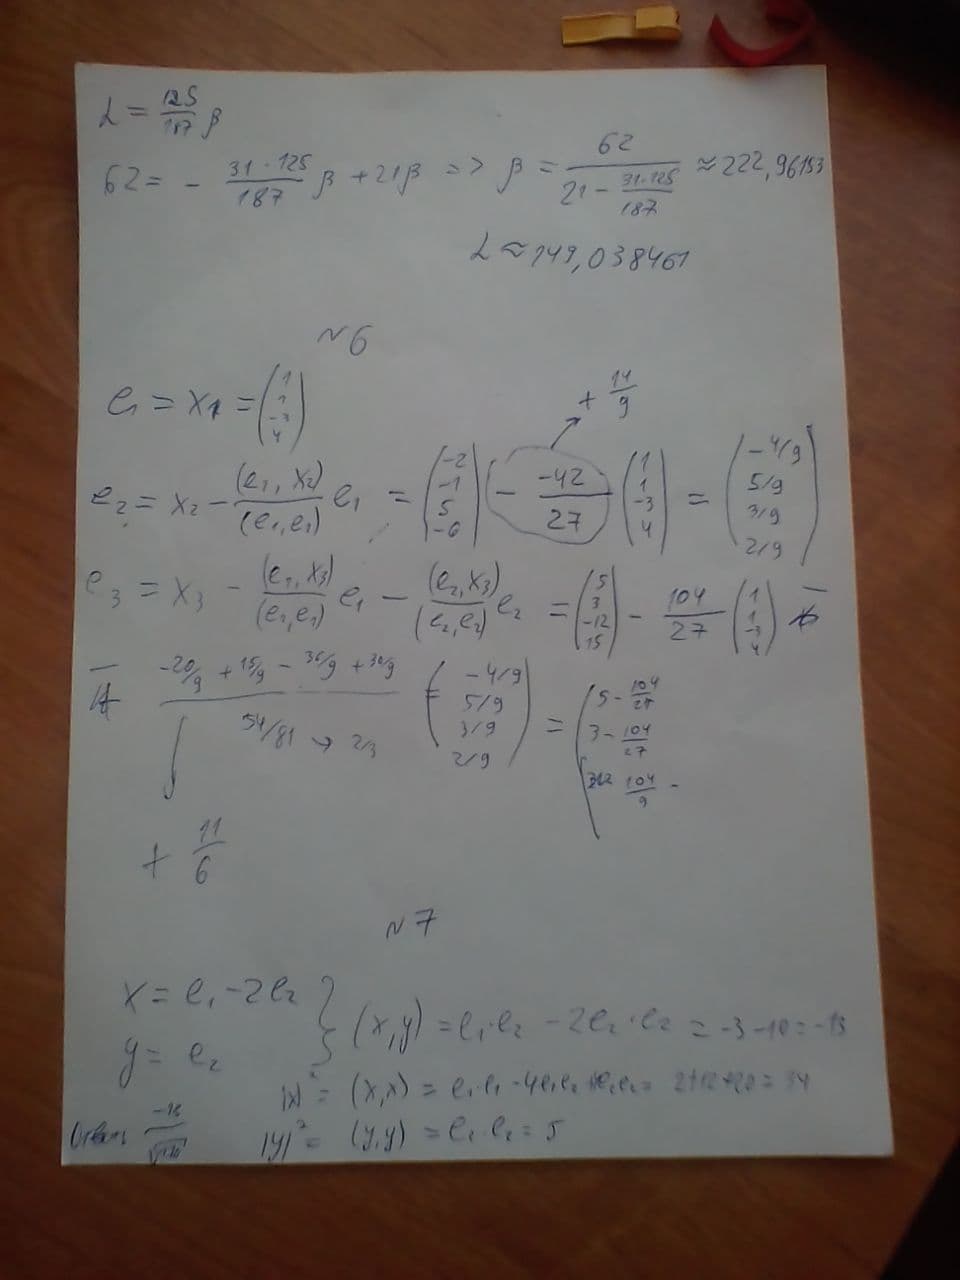 L = 125/187 β
62 = - 31·125/187 β + 21β => β = 62/(21 - 31·125/187) ≈ 222,96153
L ≈ 149,038461
~6
e₁ = x₁ = (1 1 -3 4)
+ 14/9
e₂ = x₂ - (e₁, x₂)/(e₁, e₁) e₁ = (-2 -1 5 -6) - -42/27 (1 1 -3 4) = (-4/9 5/9 3/9 2/9)
e₃ = x₃ - (e₁, x₃)/(e₁, e₁) e₁ - (e₂, x₃)/(e₂, e₂) e₂ = (5 3 -12 15) - 104/27 (1 1 -3 4) -
- (-20/9 + 15/9 - 36/9 + 30/9)/(54/81 → 2/3) (-4/9 5/9 3/9 2/9) = (5 - 104/27 3 - 104/27 104/9 -
+ 11/6
~7
x = e₁ - 2e₂
y = e₂
} (x,y) = e₁·e₂ - 2e₂·e₂ = -3 -10 = -13
|x|² = (x,x) = e₁·e₁ - 4e₁e₂ + 4e₂e₂ = 2+12+20 = 34
|y|² = (y,y) = e₂·e₂ = 5
Ответ -13